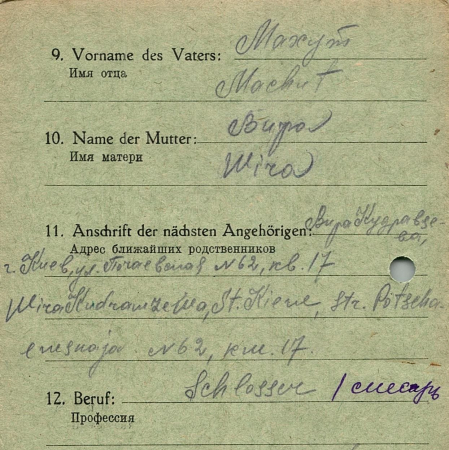 9. Vorname des Vaters: Махут
Имя отца Machut
10. Name der Mutter: Вира
Имя матери Wira
11. Anschrift der nächsten Angehörigen: Вира Кудравзе-
Адрес ближайших родственников ва,
г. Киев, ул. Почаевская №62, кв. 17
Wira Kudrawzewa, St. Kiew, Str. Potscha-
ewskaja №62, kw. 17.
12. Beruf: Schlosser / слесарь
Профессия